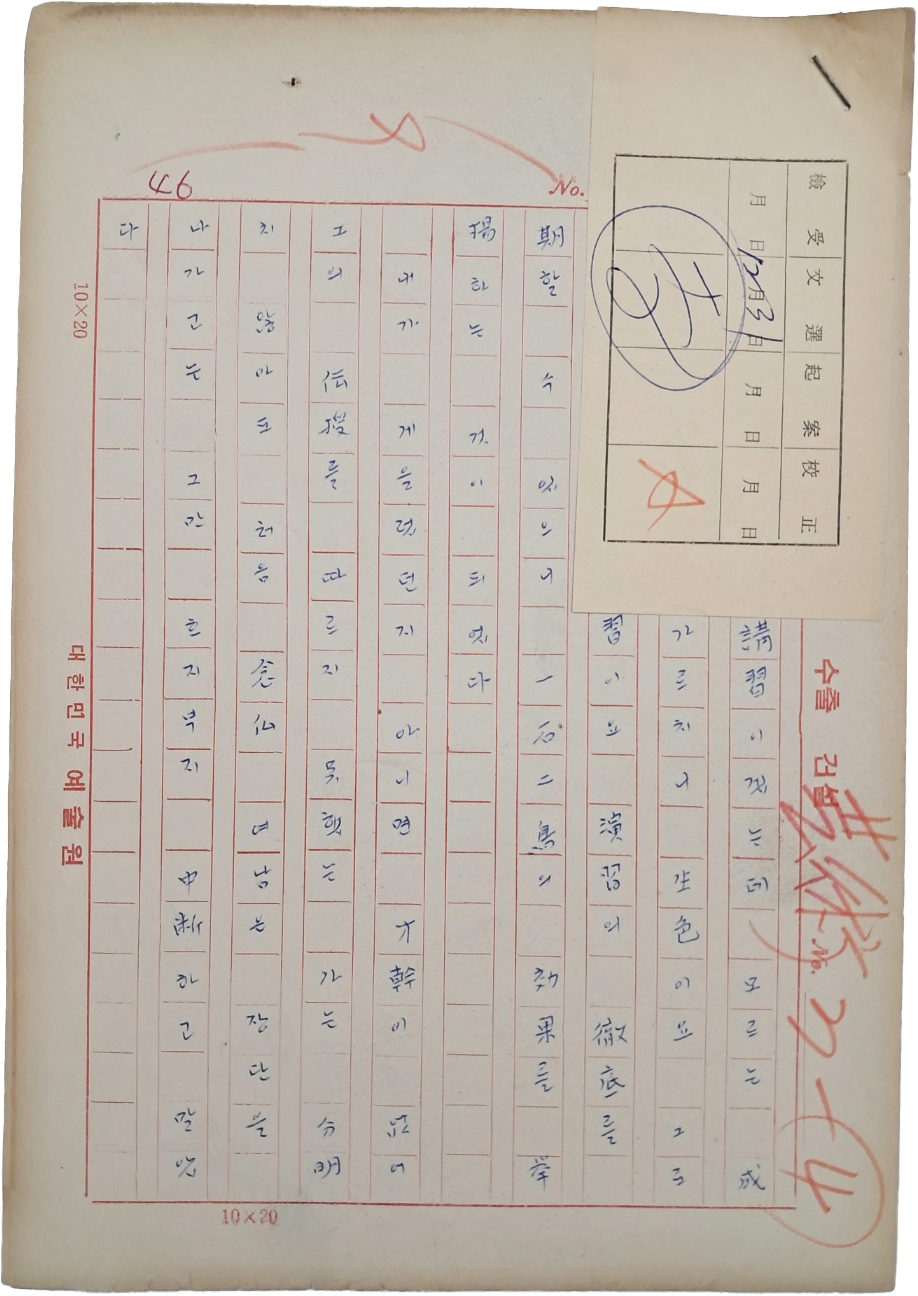 講習이겠는데 모르는 成
가르치니 生色이요 그르
習이요 演習의 徹底를
期할 수 있으니 一石二鳥의 効果를 挙
揚하는 것이 되었다
내가 게을렀던지 아니면 才幹이 없어
그의 伝授를 따르지 못했는가는 分明
치 않아도 처음 念仏 대남은 장단을
나가고는 그만 흐지부지 中断하고 말았
다
檢受 文選 起案 校正
月 日 12月31日 月 日 月 日
No.
94
수출 건설
藝術 No. 27-④
10×20
대한민국 예술원
10×20